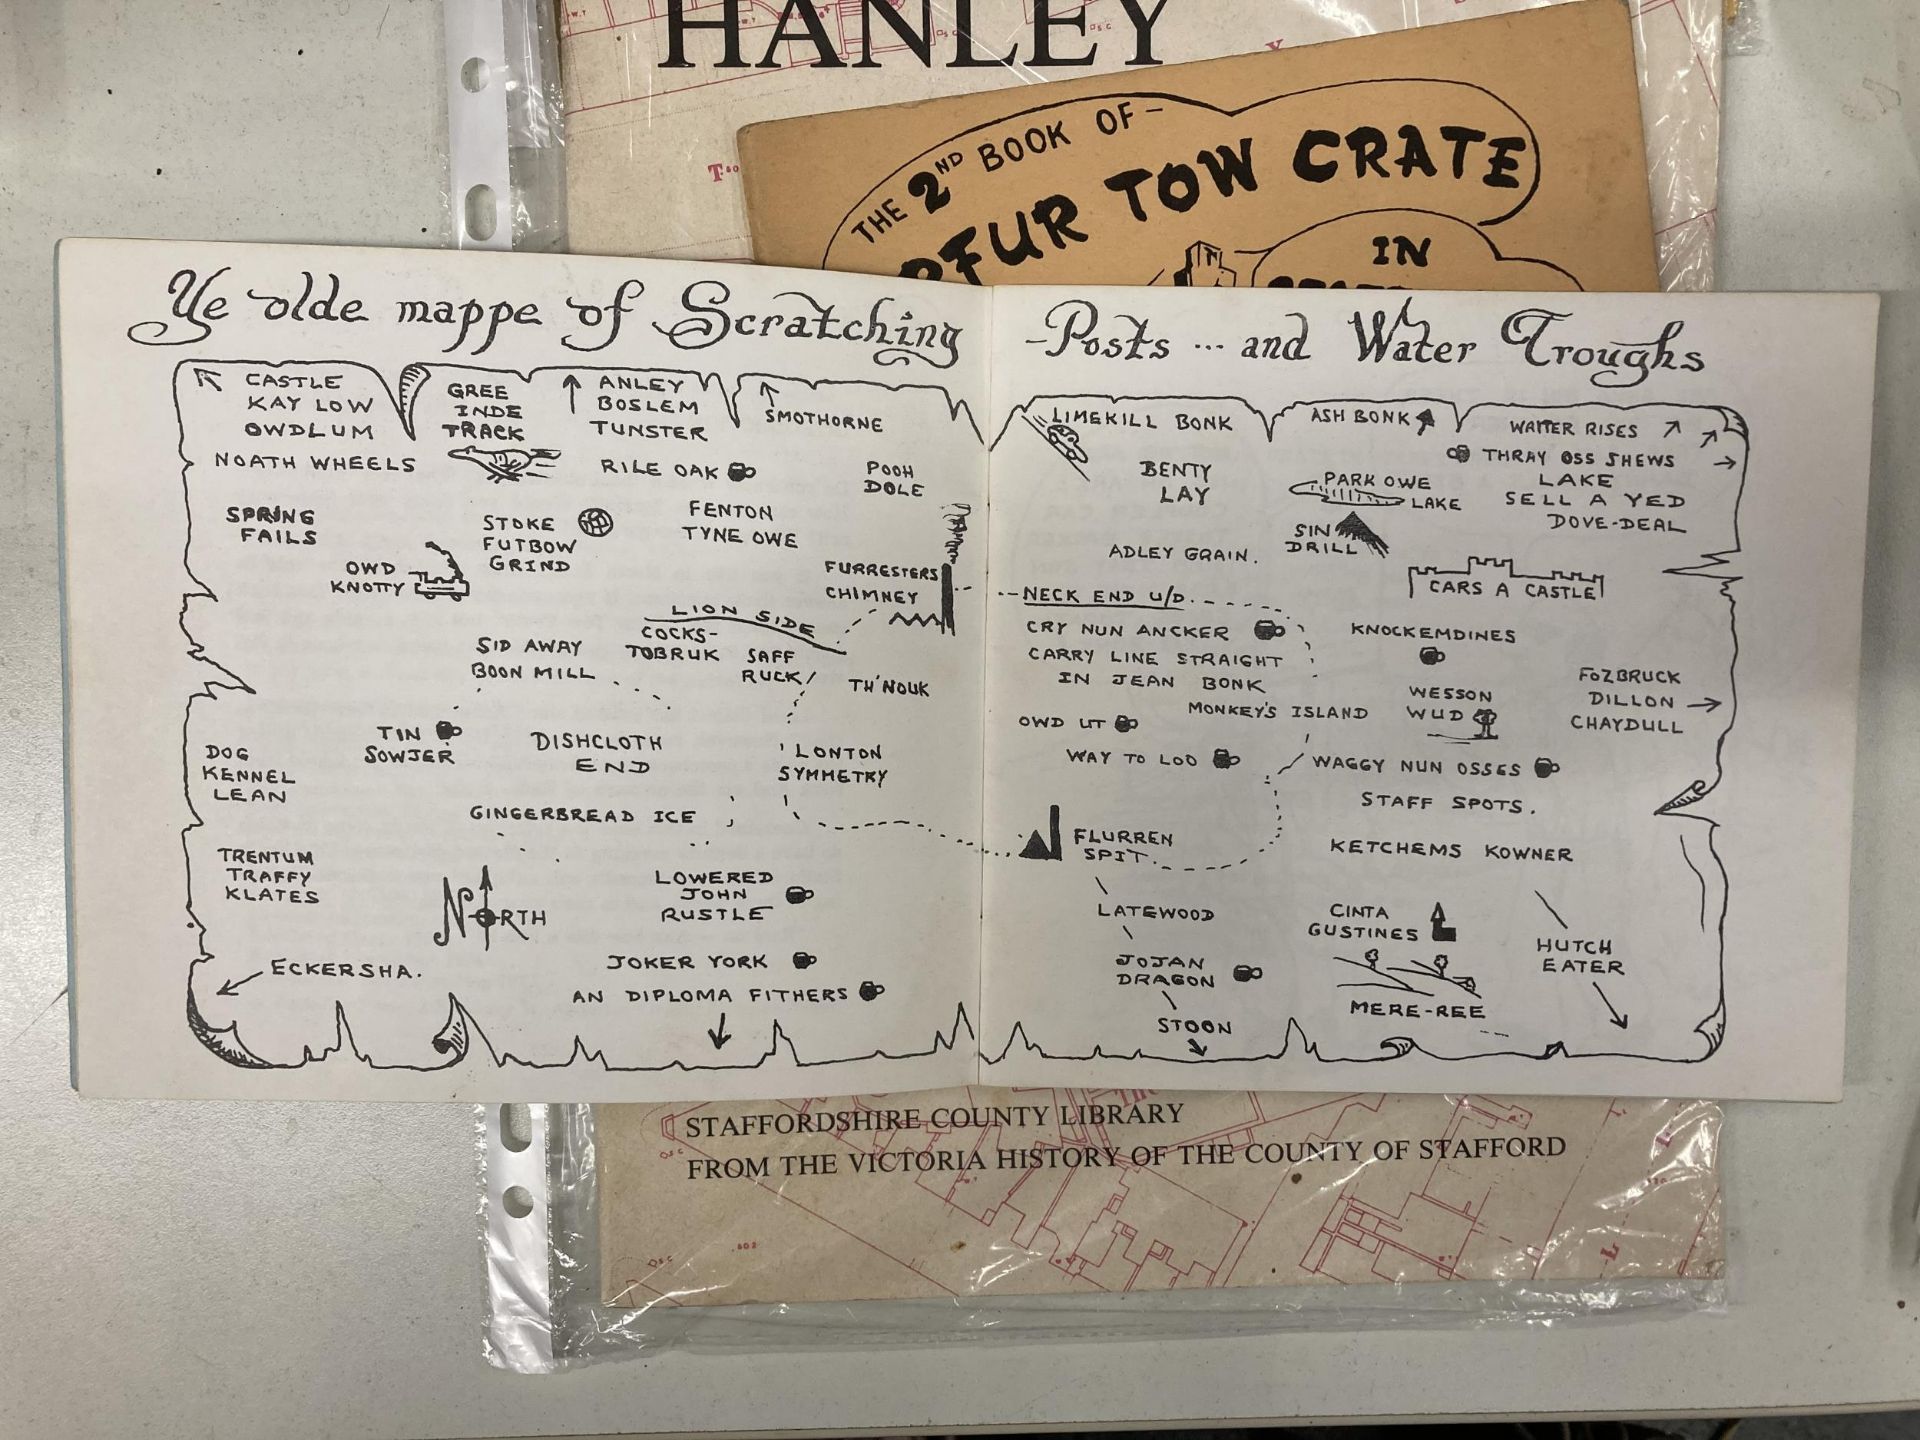 HANLEY
THE 2ND BOOK OF-
FUR TOW CRATE
IN
Ye olde mappe of Scratching
-Posts ... and Water Troughs
CASTLE
KAY LOW
OWDLUM
GREE
INDE
TRACK
ANLEY
BOSLEM
TUNSTER
SMOTHORNE
NOATH WHEELS
RILE OAK
POOH
DOLE
SPRING
FAILS
STOKE
FUTBOW
GRIND
FENTON
TYNE OWE
OWD
KNOTTY
FURRESTERS
CHIMNEY
LION SIDE
SID AWAY
BOON MILL
COCKS-
TOBRUK
SAFF
RUCK
TH'NOUK
TIN
SOWJER
DISHCLOTH
END
LONTON
SYMMETRY
DOG
KENNEL
LEAN
GINGERBREAD ICE
TRENTUM
TRAFFY
KLATES
NORTH
LOWERED
JOHN
RUSTLE
ECKERSHA.
JOKER YORK
AN DIPLOMA FITHERS
LIMEKILL BONK
ASH BONK
WATTER RISES
THRAY OSS SHEWS
LAKE
SELL A YED
DOVE-DEAL
BENTY
LAY
PARK OWE
LAKE
SIN
DRILL
ADLEY GRAIN.
CARS A CASTLE
NECK END U/D.
CRY NUN ANCKER
CARRY LINE STRAIGHT
IN JEAN BONK
KNOCKEMDINES
MONKEY'S ISLAND
WESSON
WUD
FOZBRUCK
DILLON
CHAYDULL
OWD UT
WAY TO LOO
WAGGY NUN OSSES
STAFF SPOTS.
FLURREN
SPIT.
KETCHEMS KOWNER
LATEWOOD
CINTA
GUSTINES
HUTCH
EATER
JOJAN
DRAGON
MERE-REE
STOON
STAFFORDSHIRE COUNTY LIBRARY
FROM THE VICTORIA HISTORY OF THE COUNTY OF STAFFORD